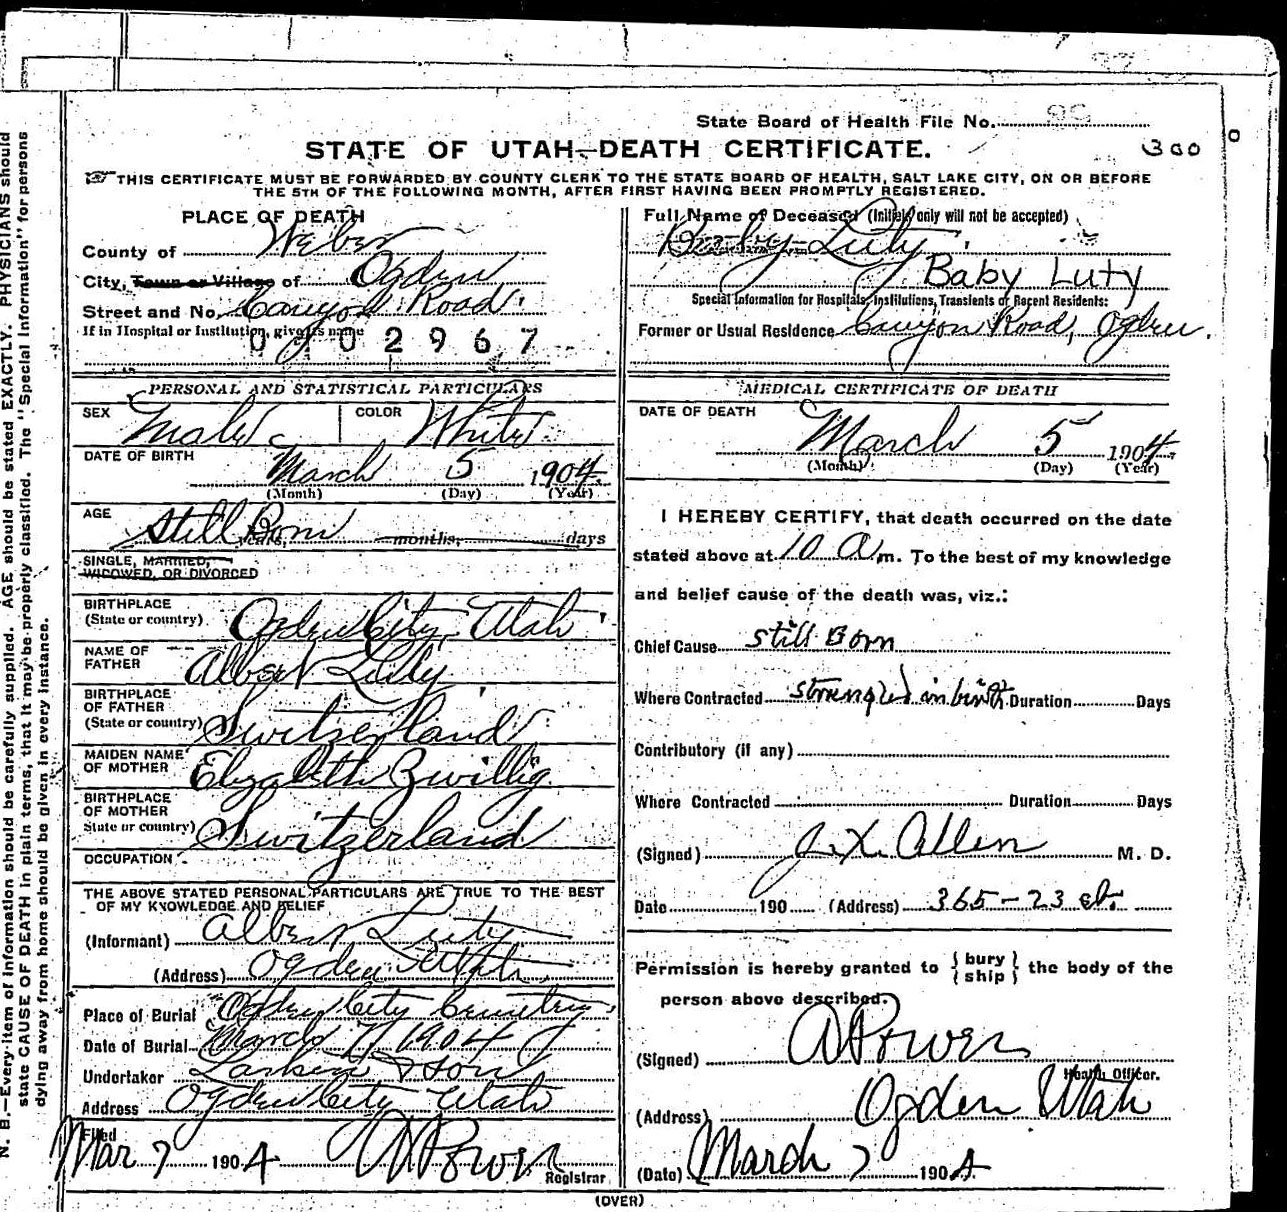 State Board of Health File No. 95
300
STATE OF UTAH—DEATH CERTIFICATE.
THIS CERTIFICATE MUST BE FORWARDED BY COUNTY CLERK TO THE STATE BOARD OF HEALTH, SALT LAKE CITY, ON OR BEFORE
THE 5TH OF THE FOLLOWING MONTH, AFTER FIRST HAVING BEEN PROMPTLY REGISTERED.
PLACE OF DEATH
County of Weber
City, Town or Village of Ogden
Street and No. Canyon Road.
If in Hospital or Institution, give its name
0 1 0 2 9 6 7
PERSONAL AND STATISTICAL PARTICULARS
SEX Male COLOR White
DATE OF BIRTH
March 5 1904
(Month) (Day) (Year)
AGE Still Born years, months, days
SINGLE, MARRIED,
WIDOWED, OR DIVORCED
BIRTHPLACE
(State or country) Ogden City, Utah
NAME OF
FATHER Albert Luty
BIRTHPLACE
OF FATHER
(State or country) Switzerland
MAIDEN NAME
OF MOTHER Elizabeth Zwillig
BIRTHPLACE
OF MOTHER
State or country) Switzerland
OCCUPATION
THE ABOVE STATED PERSONAL PARTICULARS ARE TRUE TO THE BEST
OF MY KNOWLEDGE AND BELIEF
(Informant) Albert Luty
(Address) Ogden Utah
Place of Burial Ogden City Cemetery
Date of Burial March 7, 1904
Undertaker Larkin & Son
Address Ogden City Utah
Filed
Mar 7 1904 Registrar
Full Name of Deceased (Initials only will not be accepted)
Baby Luty
Baby Luty
Special Information for Hospitals, Institutions, Transients or Recent Residents:
Former or Usual Residence Canyon Road, Ogden.
MEDICAL CERTIFICATE OF DEATH
DATE OF DEATH
March 5 1904
(Month) (Day) (Year)
I HEREBY CERTIFY, that death occurred on the date
stated above at 10 A m. To the best of my knowledge
and belief cause of the death was, viz.:
Chief Cause Still Born
Where Contracted strangled in birth Duration Days
Contributory (if any)
Where Contracted Duration Days
(Signed) J. X. Allen M. D.
Date 190 (Address) 365-23 st.
Permission is hereby granted to { bury
ship } the body of the
person above described.
(Signed)
Health Officer.
(Address) Ogden Utah
(Date) March 7 1904
(OVER)
N. B.—Every item of information should be carefully supplied. AGE should be stated EXACTLY. PHYSICIANS should
state CAUSE OF DEATH in plain terms, that it may be properly classified. The "Special Information" for persons
dying away from home should be given in every instance.